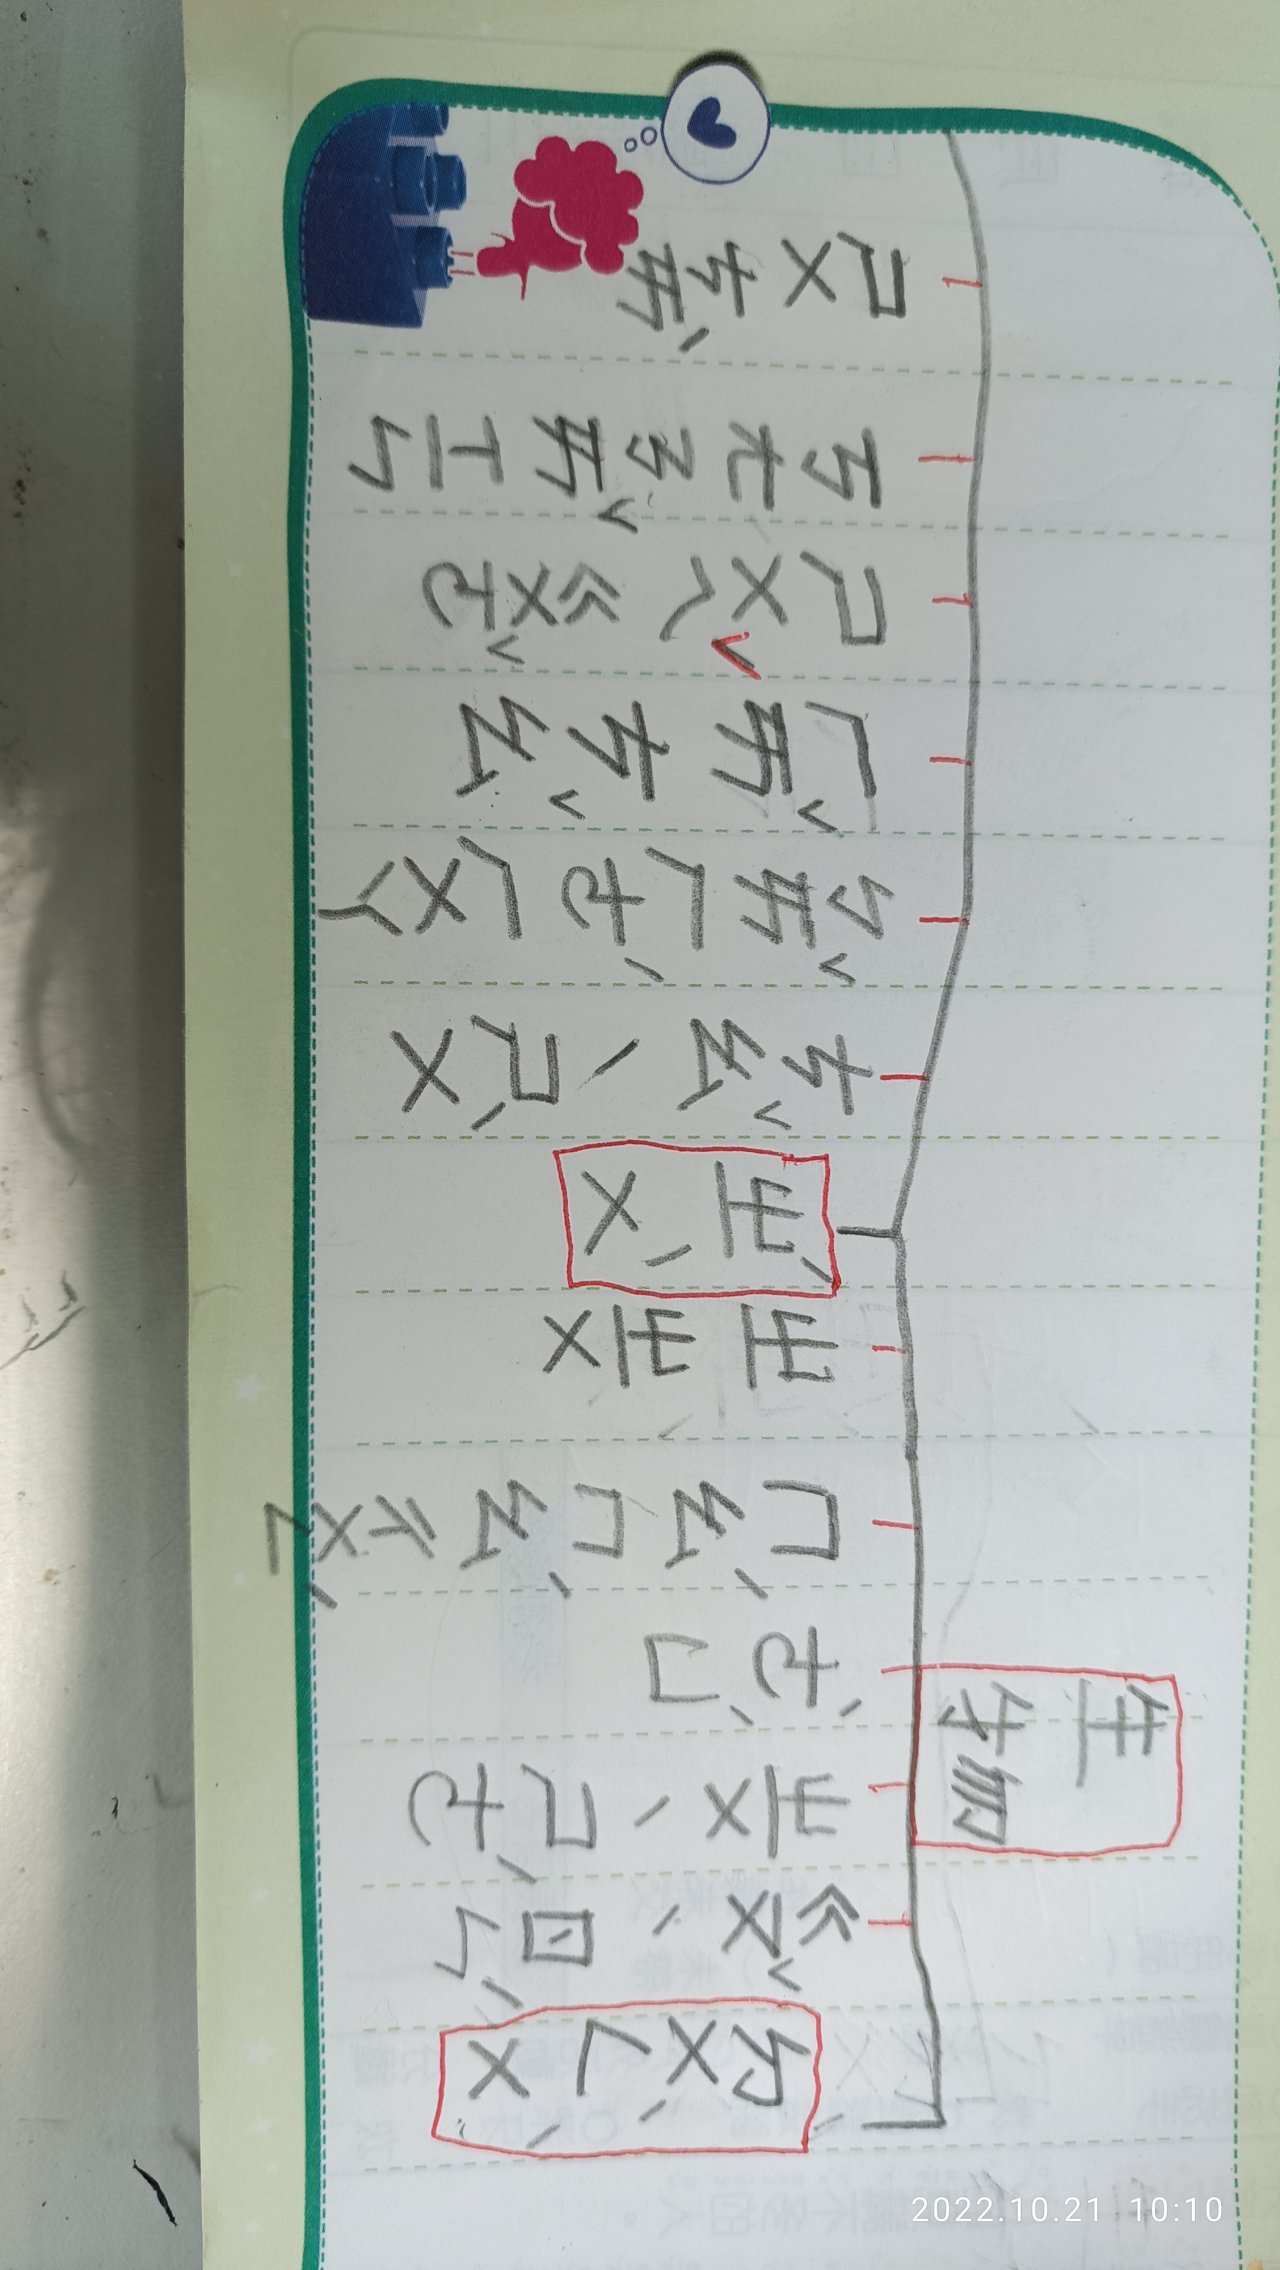 生物
ㄉㄨㄥˋㄨˋ
ㄍㄡˇ、ㄖㄣˊ
ㄓㄨ、ㄕㄜˊ
ㄜˋㄇˊ
ㄇㄠˊㄇㄠˊㄔㄨㄥˊ
ㄓㄓㄨ
ㄓˊㄨˋ
ㄘㄠˇ、ㄕㄨˋ
ㄅㄞˇㄏㄜˊㄏㄨㄚ
ㄏㄞˇㄘㄠˇ
ㄕㄨㄟˇㄍㄨㄛˇ
ㄎㄤㄋㄞˇㄒㄧㄣ
ㄕㄨㄘㄞˋ
2022.10.21 10:10